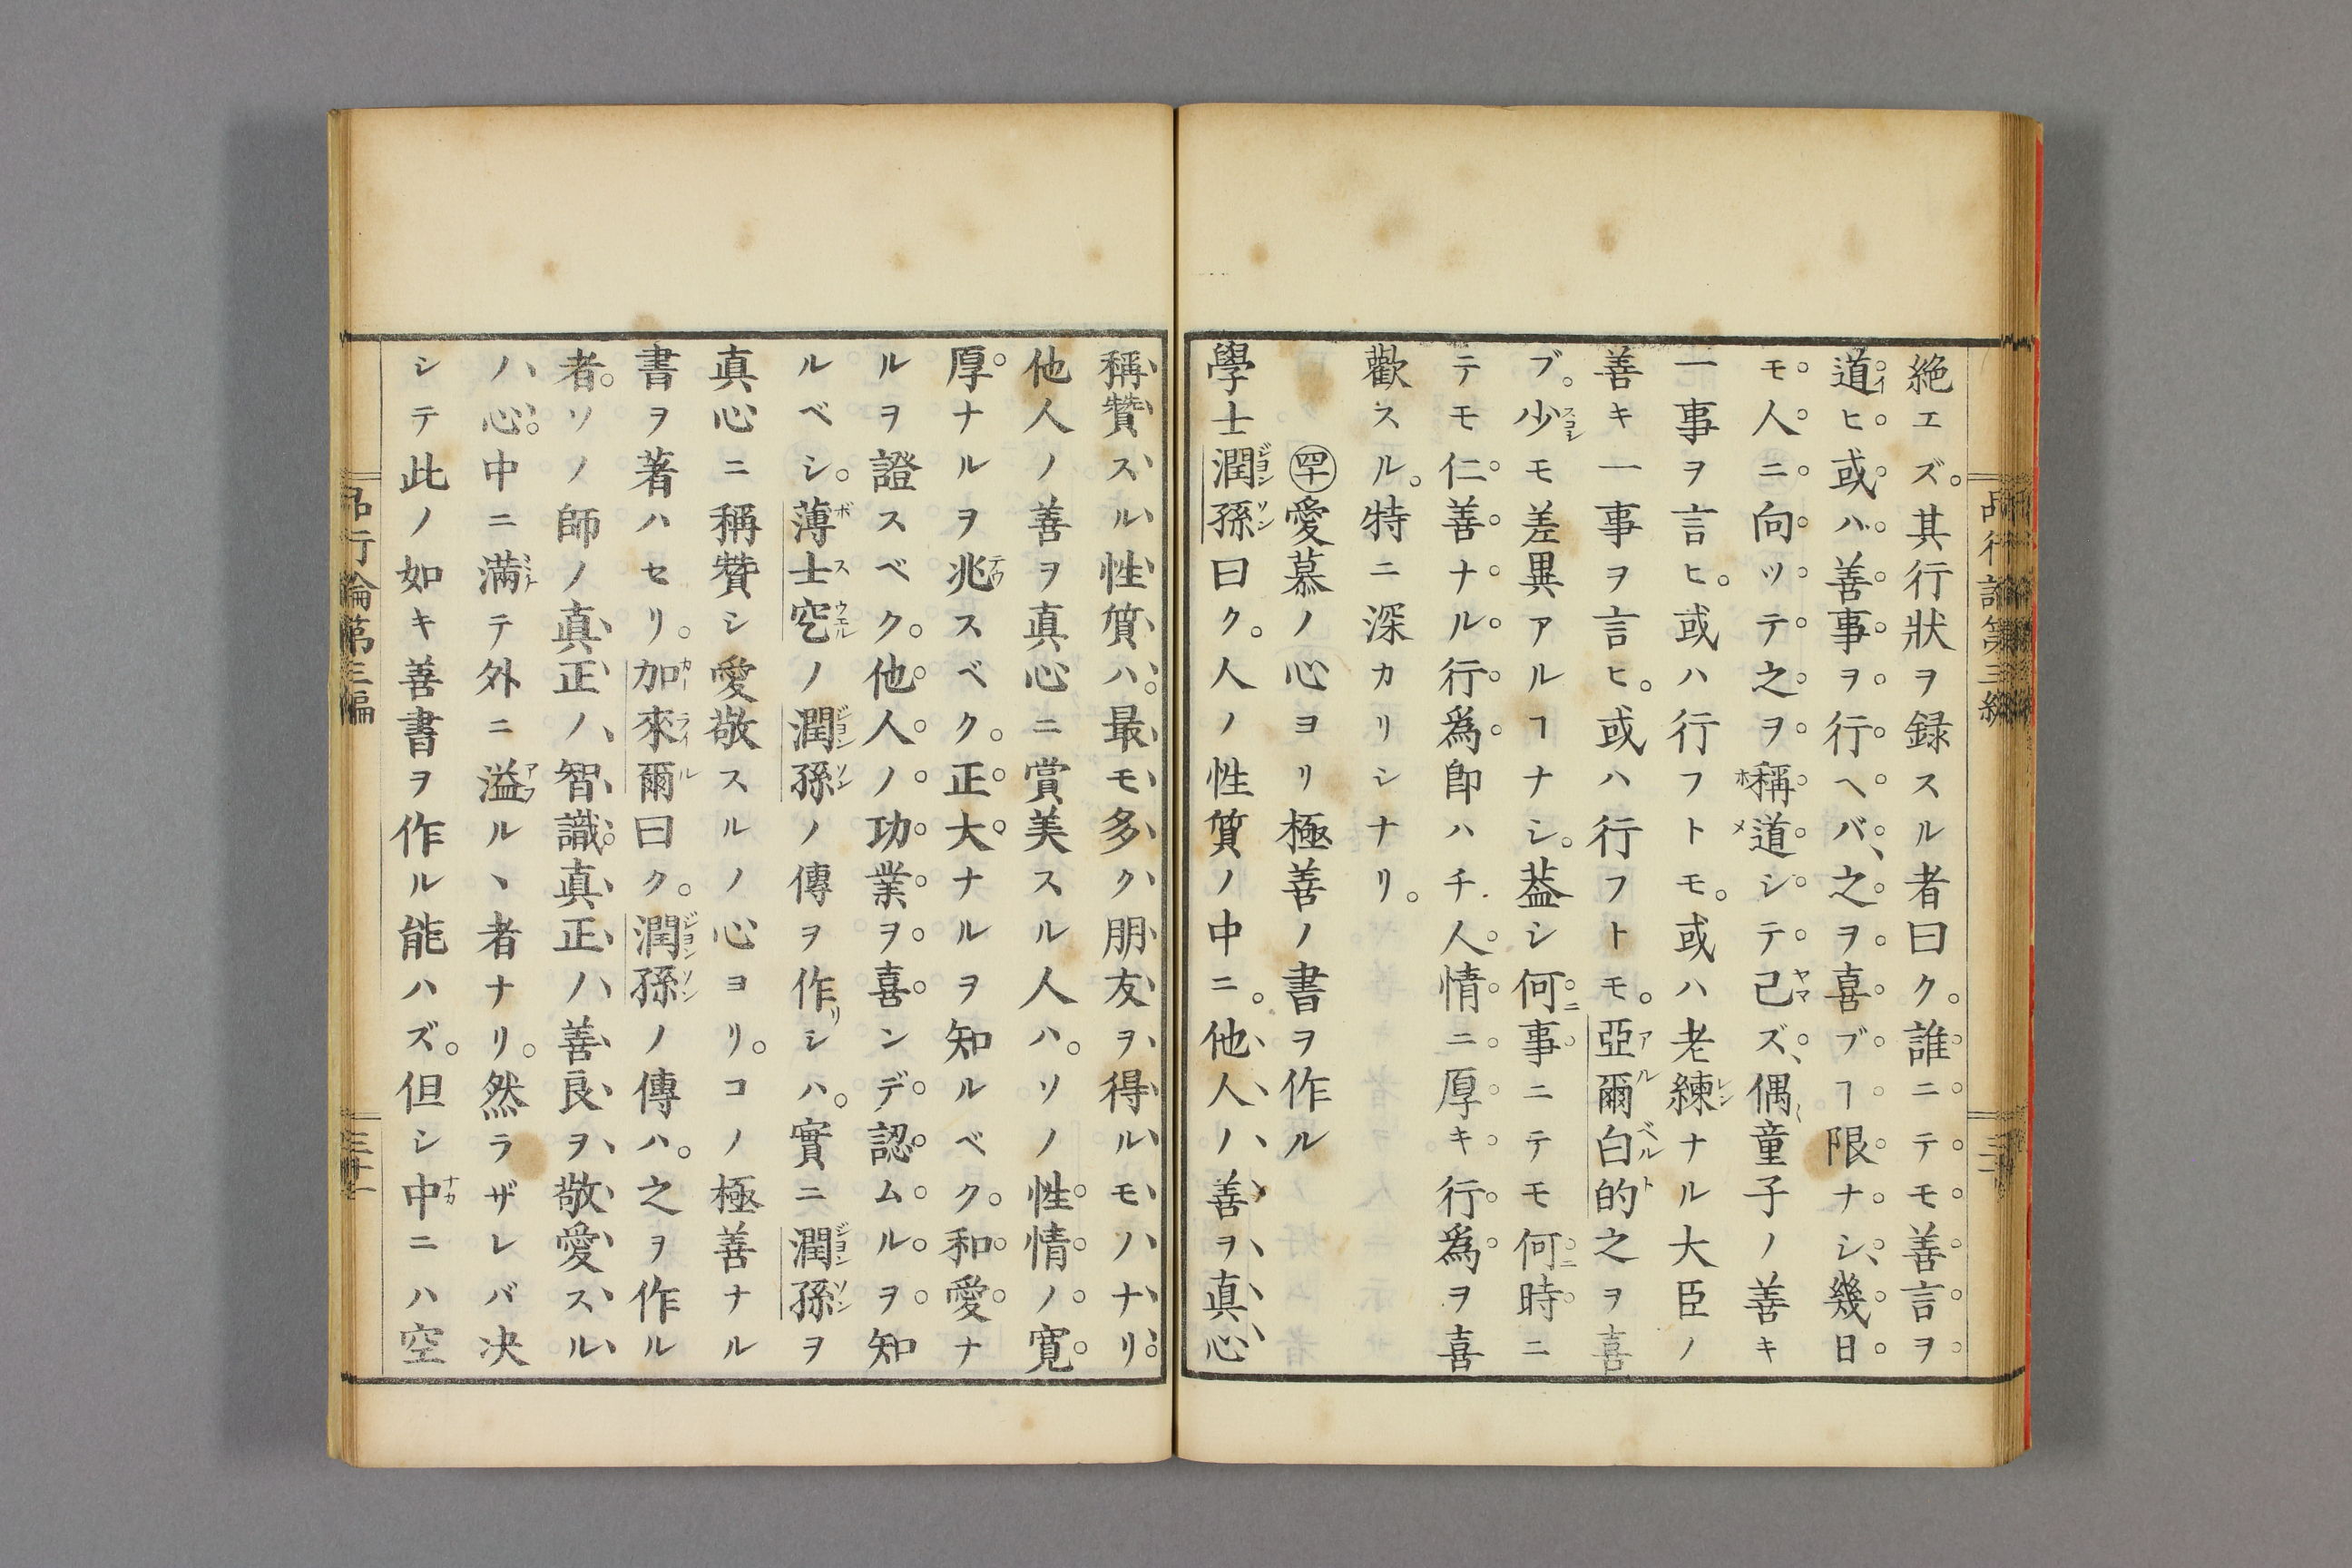 絶エズ。其行狀ヲ録スル者曰ク。誰ニテモ善言ヲ
道ヒ或ハ善事ヲ行ヘバ、之ヲ喜ブヿ限ナシ、幾日
モ人ニ向ッテ之ヲ稱道シテ已ズ、偶童子ノ善キ
一事ヲ言ヒ。或ハ行フトモ。或ハ老練ナル大臣ノ
善キ一事ヲ言ヒ。或ハ行フトモ。亞爾白的之ヲ喜
ブ。少モ差異アルヿナシ。葢シ何事ニテモ何時ニ
テモ仁善ナル行爲即ハチ人情ニ厚キ行爲ヲ喜
歡スル。特ニ深カリシナリ。
㊵愛慕ノ心ヨリ極善ノ書ヲ作ル
學士潤孫曰ク。人ノ性質ノ中ニ。他人ノ善ヲ真心
稱贊スル性質ハ。最モ多ク朋友ヲ得ルモノナリ。
他人ノ善ヲ真心ニ賞美スル人ハ。ソノ性情ノ寛
厚ナルヲ兆スベク。正大ナルヲ知ルベク。和愛ナ
ルヲ證スベク。他人ノ功業ヲ喜ンデ認ムルヲ知
ルベシ。薄士空ノ潤孫ノ傳ヲ作リシハ。實ニ潤孫ヲ
真心ニ稱贊シ愛敬スルノ心ヨリ。コノ極善ナル
書ヲ著ハセリ。加來爾曰ク。潤孫ノ傳ハ。之ヲ作ル
者。ソノ師ノ真正ノ智識真正ノ善良ヲ敬愛スル
ノ心中ニ滿テ外ニ溢ルヽ者ナリ。然ラザレバ决
シテ此ノ如キ善書ヲ作ル能ハズ。但シ中ニハ空
品行論第三編